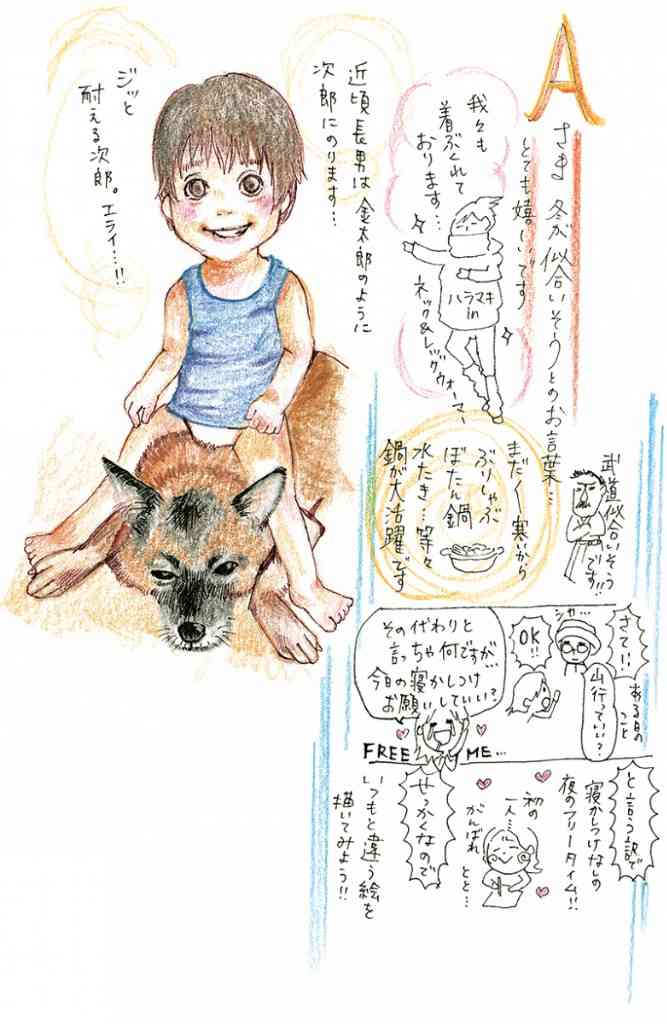 A
さま 冬が似合いそうとのお言葉…
とても嬉しいです
我々も
着ぶくれて
おります…
ハラマキ
in
ネック&レッグウォーマー
近頃長男は金太郎のように
次郎にのります…
ジッと
耐える次郎。エライ…!!
武道似合いそう
です!!
まだまだ寒いから
ぶりしゃぶ
ぼたん鍋
水たき…等々
鍋が大活躍です
さて!!
ある日の
こと
シャ…
山行っていい?
OK!!
その代わりと
言っちゃ何ですが…
今日の寝かしつけ
お願いしていい?
FREE ME…
と言う訳で
寝かしつけなしの
夜のフリータイム!!
初の
一人…
がんばれ
とと…
せっかくなので
いつもと違う絵を
描いてみよう!!